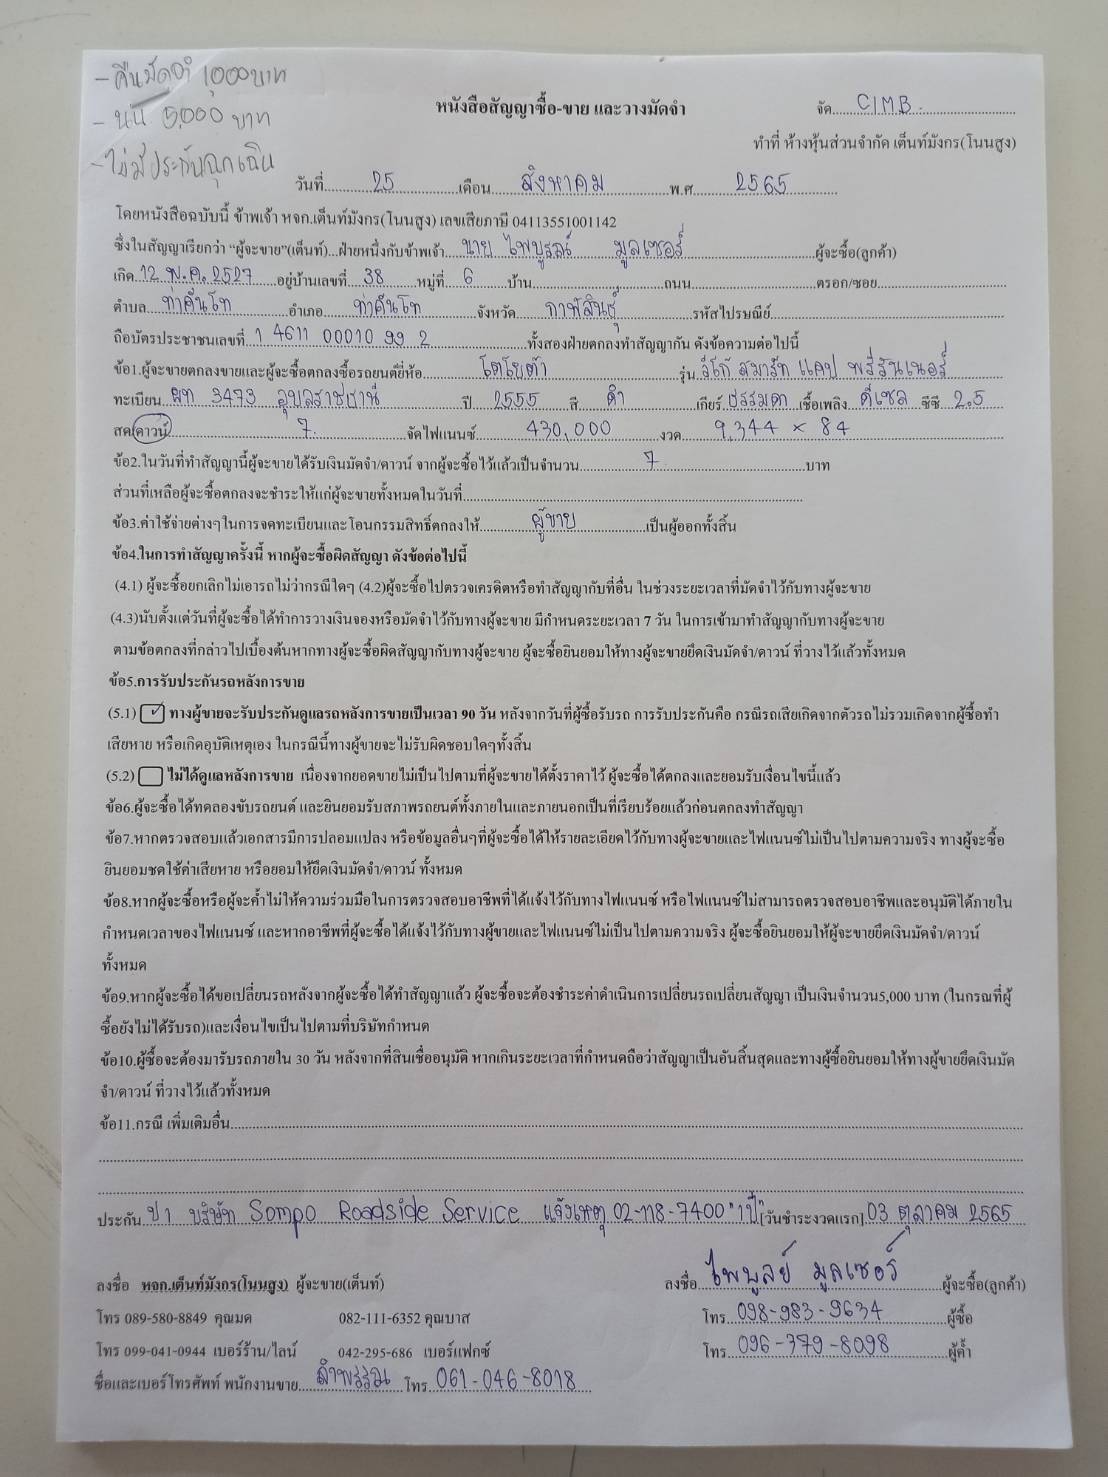 - คืนมัดจำ 1,000 บาท
- หัน 5,000 บาท
- ไม่มีประกันฉุกเฉิน
หนังสือสัญญาซื้อ-ขาย และวางมัดจำ
จัด CIMB.
ทำที่ ห้างหุ้นส่วนจำกัด เต็นท์มังกร(โนนสูง)
วันที่ 25 เดือน สิงหาคม พ.ศ 2565
โดยหนังสือฉบับนี้ ข้าพเจ้า หจก.เต็นท์มังกร(โนนสูง) เลขเสียภาษี 04113551001142
ซึ่งในสัญญาเรียกว่า “ผู้จะขาย”(เต็นท์)...ฝ่ายหนึ่งกับข้าพเจ้า นาย ไพบูรลย์ มูลเซอร์ ผู้จะซื้อ(ลูกค้า)
เกิด 12 พ.ค. 2527 อยู่บ้านเลขที่ 38 หมู่ที่ 6 บ้าน ถนน ตรอก/ซอย
ตำบล ท่าคันโท อำเภอ ท่าคันโท จังหวัด กาฬสินธุ์ รหัสไปรษณีย์
ถือบัตรประชาชนเลขที่ 1 4611 00010 99 2 ทั้งสองฝ่ายตกลงทำสัญญากัน ดังข้อความต่อไปนี้
ข้อ1.ผู้จะขายตกลงขายและผู้จะซื้อตกลงซื้อรถยนต์ยี่ห้อ โตโยต้า รุ่น วีโก้ สมาร์ท แคป พรีรันเนอร์
ทะเบียน ผท 3473 อุบลราชธานี ปี 2555 สี ดำ เกียร์ ธรรมดา เชื้อเพลิง ดีเซล ซีซี 2.5
สด/ดาวน์ 7. จัดไฟแนนซ์ 430,000 งวด 9,344 × 84
ข้อ2.ในวันที่ทำสัญญานี้ผู้จะขายได้รับเงินมัดจำ/ดาวน์ จากผู้จะซื้อไว้แล้วเป็นจำนวน 7 บาท
ส่วนที่เหลือผู้จะซื้อตกลงจะชำระให้แก่ผู้จะขายทั้งหมดในวันที่
ข้อ3.ค่าใช้จ่ายต่างๆในการจดทะเบียนและโอนกรรมสิทธิ์ตกลงให้ ผู้ขาย เป็นผู้ออกทั้งสิ้น
ข้อ4.ในการทำสัญญาครั้งนี้ หากผู้จะซื้อผิดสัญญา ดังข้อต่อไปนี้
(4.1) ผู้จะซื้อยกเลิกไม่เอารถไม่ว่ากรณีใดๆ (4.2)ผู้จะซื้อไปตรวจเครดิตหรือทำสัญญากับที่อื่น ในช่วงระยะเวลาที่มัดจำไว้กับทางผู้จะขาย
(4.3)นับตั้งแต่วันที่ผู้จะซื้อได้ทำการวางเงินจองหรือมัดจำไว้กับทางผู้จะขาย มีกำหนดระยะเวลา 7 วัน ในการเข้ามาทำสัญญากับทางผู้จะขาย
ตามข้อตกลงที่กล่าวไปเบื้องต้นหากทางผู้จะซื้อผิดสัญญากับทางผู้จะขาย ผู้จะซื้อยินยอมให้ทางผู้จะขายยึดเงินมัดจำ/ดาวน์ ที่วางไว้แล้วทั้งหมด
ข้อ5.การรับประกันรถหลังการขาย
(5.1) ✓ ทางผู้ขายจะรับประกันดูแลรถหลังการขายเป็นเวลา 90 วัน หลังจากวันที่ผู้ซื้อรับรถ การรับประกันคือ กรณีรถเสียเกิดจากตัวรถไม่รวมเกิดจากผู้ซื้อทำ
เสียหาย หรือเกิดอุบัติเหตุเอง ในกรณีนี้ทางผู้ขายจะไม่รับผิดชอบใดๆทั้งสิ้น
(5.2) ไม่ได้ดูแลหลังการขาย เนื่องจากยอดขายไม่เป็นไปตามที่ผู้จะขายได้ตั้งราคาไว้ ผู้จะซื้อได้ตกลงและยอมรับเงื่อนไขนี้แล้ว
ข้อ6.ผู้จะซื้อได้ทดลองขับรถยนต์ และยินยอมรับสภาพรถยนต์ทั้งภายในและภายนอกเป็นที่เรียบร้อยแล้วก่อนตกลงทำสัญญา
ข้อ7.หากตรวจสอบแล้วเอกสารมีการปลอมแปลง หรือข้อมูลอื่นๆที่ผู้จะซื้อได้ให้รายละเอียดไว้กับทางผู้จะขายและไฟแนนซ์ไม่เป็นไปตามความจริง ทางผู้จะซื้อ
ยินยอมชดใช้ค่าเสียหาย หรือยอมให้ยึดเงินมัดจำ/ดาวน์ ทั้งหมด
ข้อ8.หากผู้จะซื้อหรือผู้จะค้ำไม่ให้ความร่วมมือในการตรวจสอบอาชีพที่ได้แจ้งไว้กับทางไฟแนนซ์ หรือไฟแนนซ์ไม่สามารถตรวจสอบอาชีพและอนุมัติได้ภายใน
กำหนดเวลาของไฟแนนซ์ และหากอาชีพที่ผู้จะซื้อได้แจ้งไว้กับทางผู้ขายและไฟแนนซ์ไม่เป็นไปตามความจริง ผู้จะซื้อยินยอมให้ผู้จะขายยึดเงินมัดจำ/ดาวน์
ทั้งหมด
ข้อ9.หากผู้จะซื้อได้ขอเปลี่ยนรถหลังจากผู้จะซื้อได้ทำสัญญาแล้ว ผู้จะซื้อจะต้องชำระค่าดำเนินการเปลี่ยนรถเปลี่ยนสัญญา เป็นเงินจำนวน5,000 บาท (ในกรณที่ผู้
ซื้อยังไม่ได้รับรถ)และเงื่อนไขเป็นไปตามที่บริษัทกำหนด
ข้อ10.ผู้ซื้อจะต้องมารับรถภายใน 30 วัน หลังจากที่สินเชื่ออนุมัติ หากเกินระยะเวลาที่กำหนดถือว่าสัญญาเป็นอันสิ้นสุดและทางผู้ซื้อยินยอมให้ทางผู้ขายยึดเงินมัด
จำ/ดาวน์ ที่วางไว้แล้วทั้งหมด
ข้อ11.กรณี เพิ่มเติมอื่น
ประกัน ป1 บริษัท Sompo Roadside Service แจ้งเหตุ 02-118-7400 "1ปี" [วันชำระงวดแรก] 03 ตุลาคม 2565
ลงชื่อ หจก.เต็นท์มังกร(โนนสูง) ผู้จะขาย(เต็นท์) ลงชื่อ ไพบูลย์ มูลเซอร์ ผู้จะซื้อ(ลูกค้า)
โทร 089-580-8849 คุณมด 082-111-6352 คุณบาส โทร 098-983-9634 ผู้ซื้อ
โทร 099-041-0944 เบอร์ร้าน/ไลน์ 042-295-686 เบอร์แฟกซ์ โทร 096-379-8098 ผู้ค้ำ
ชื่อและเบอร์โทรศัพท์ พนักงานขาย ลำพรรณ โทร 061-046-8018